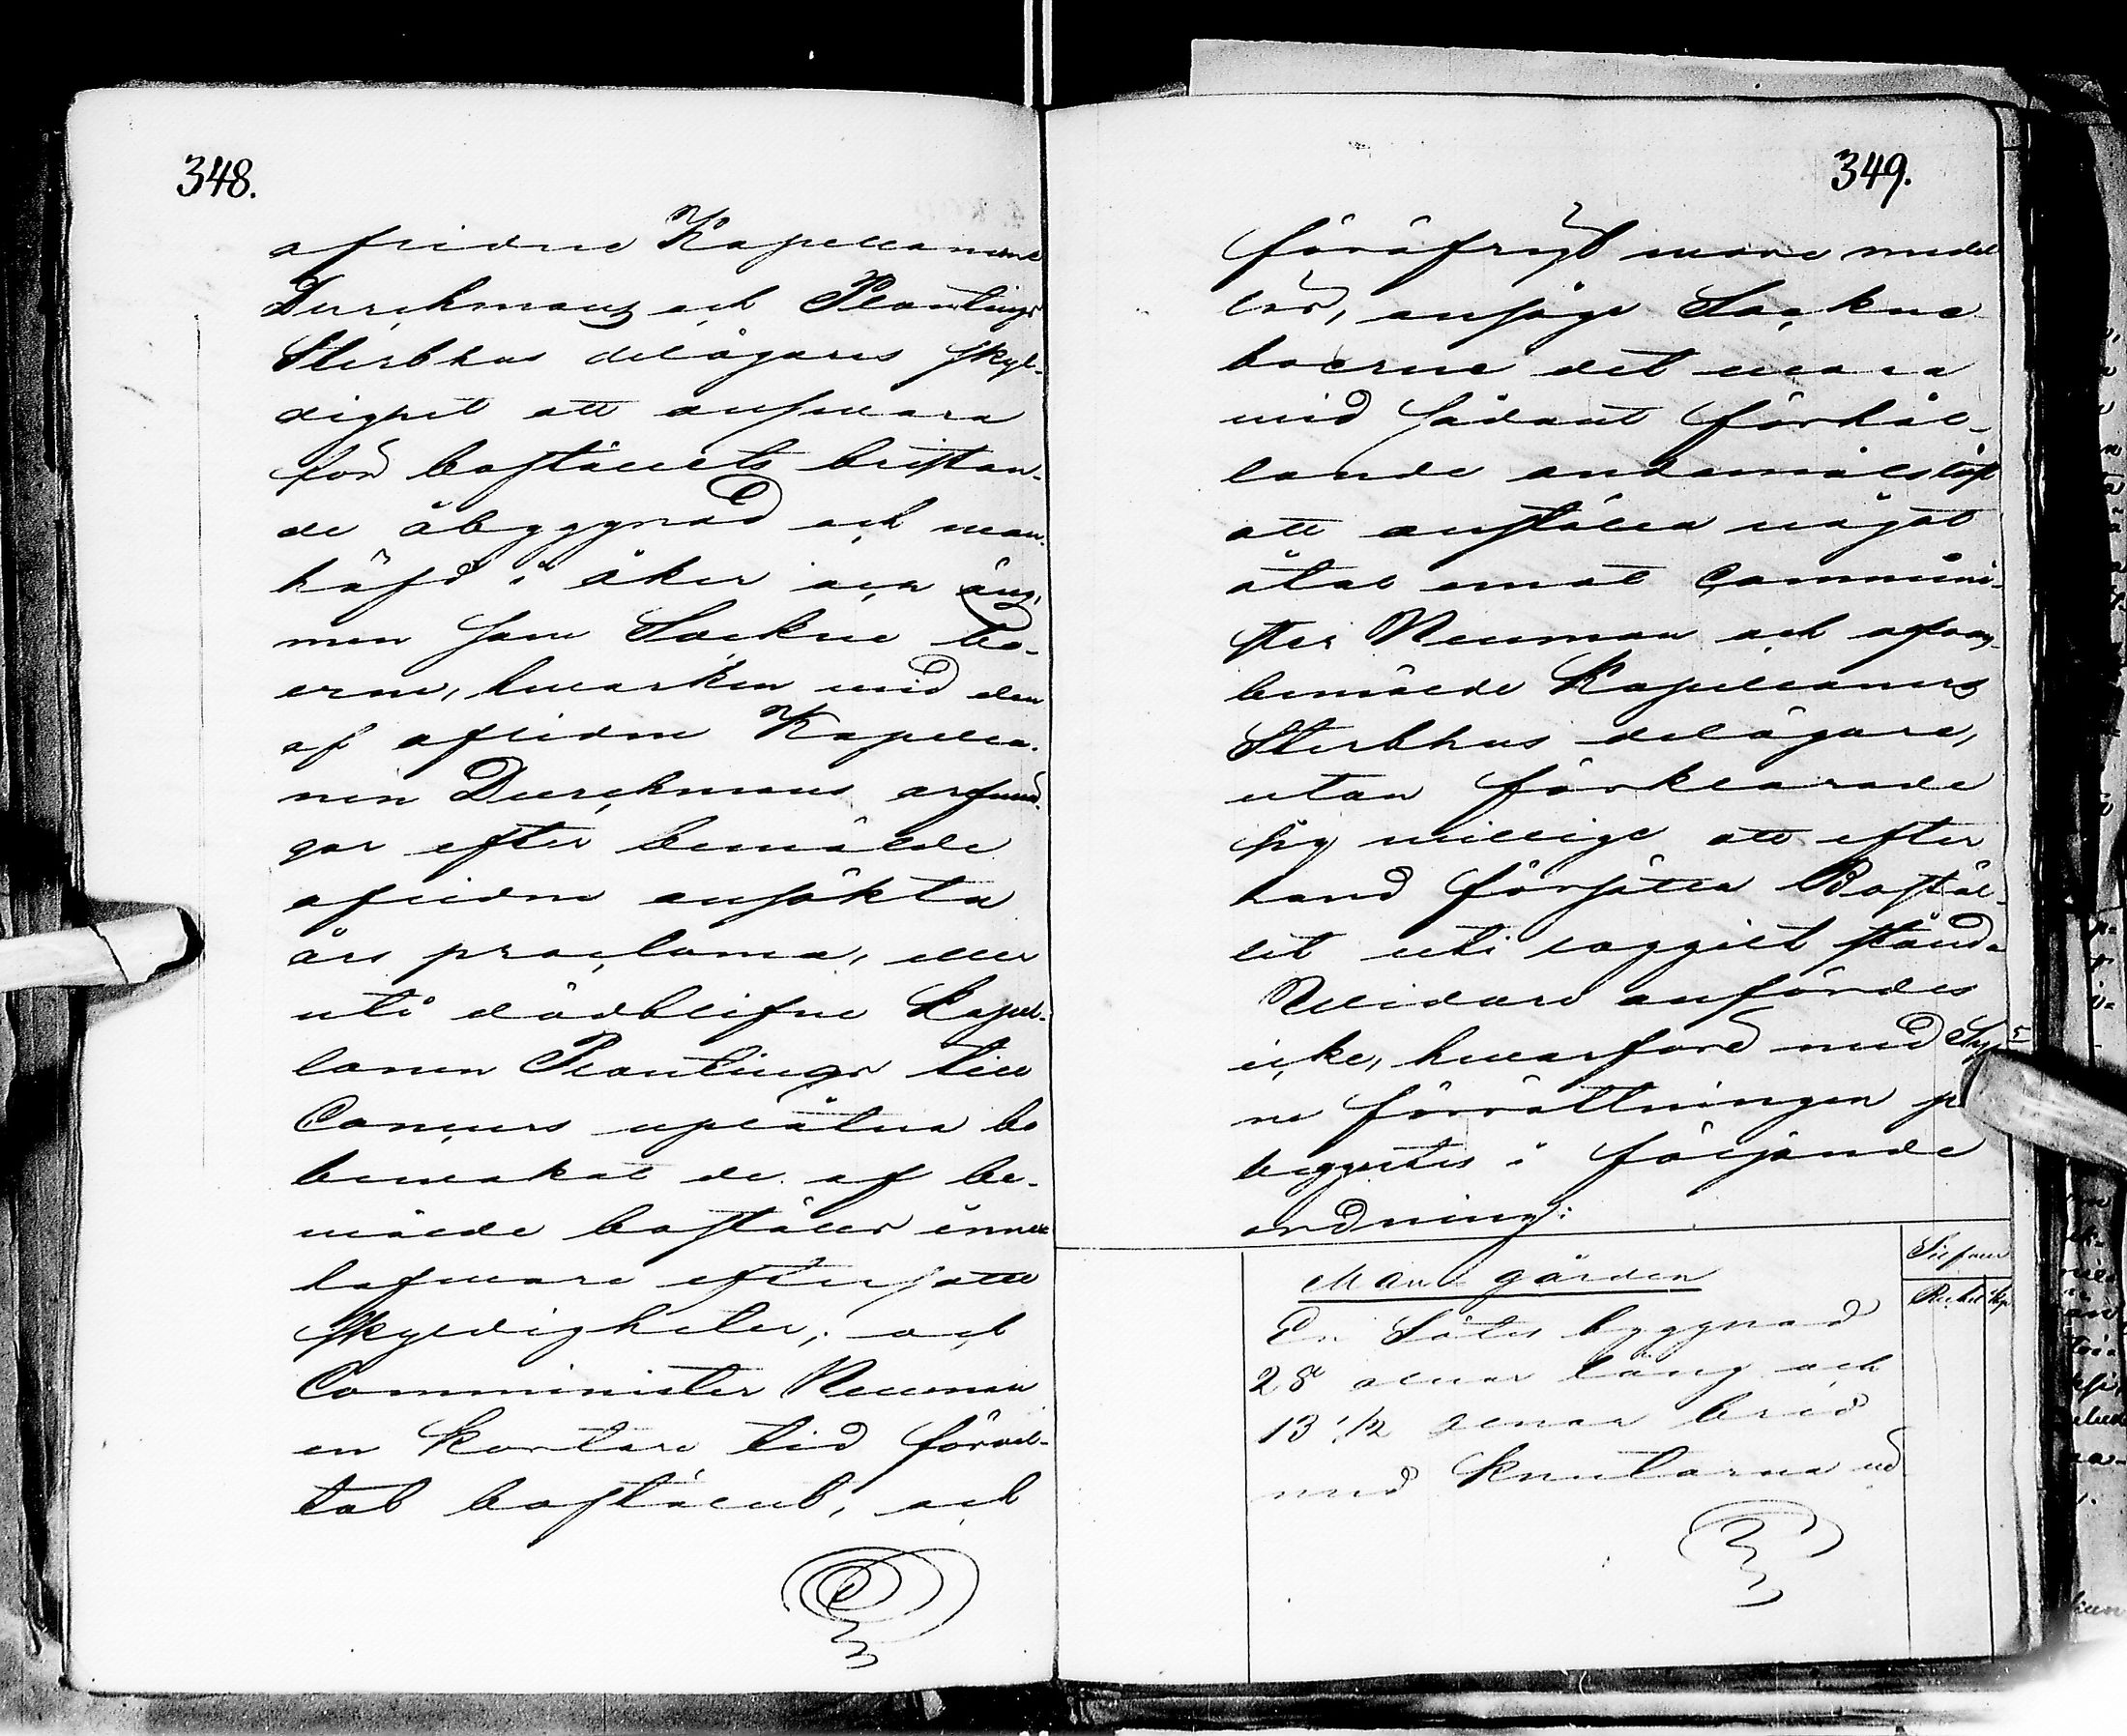 348.
aflidne Kapellanerne
Durchmans och Plantings
Sterbhus delägares skyl-
dighet att ansvara
för boställets bristan-
de åbyggnad och wan-
häfd i åker och äng,
men som Sockne bo-
erne, hwarken wid den
af aflidne Kapella-
nen Durchmans arfwin-
gar efter bemälde
aflidne ansökta
års proclama, eller
uti dödblifne Kapel-
lanen Plantings till
Concurs uplåtna bo
bewakat de af be-
mälde boställs inne-
hafware eftersatte
skyldigheter; och
Comminister Neuman
en kortare tid förwal-
tat bostället, och
349.
föröfrigt wore medel
lös, ansågo Sockne
boerne det wara
wid sådant förhål-
lande ändamålslöst
att anställa något
åtal emot Commini-
ster Neuman och ofwan-
bemälde Kapellaners
Sterbhus delägare,
utan förklarade
sig willige att efter
hand försätta Bostäl-
let uti laggilt stånd.
Widare anfördes
icke, hwarföre med Sy-
ne förrättningen
begyntes i följande
ordning:
Silfwer
Rubel Kop
Mans gården
En Sätes byggnad
28 alnar lång och
13 1/2 alnar bred
med knutarna